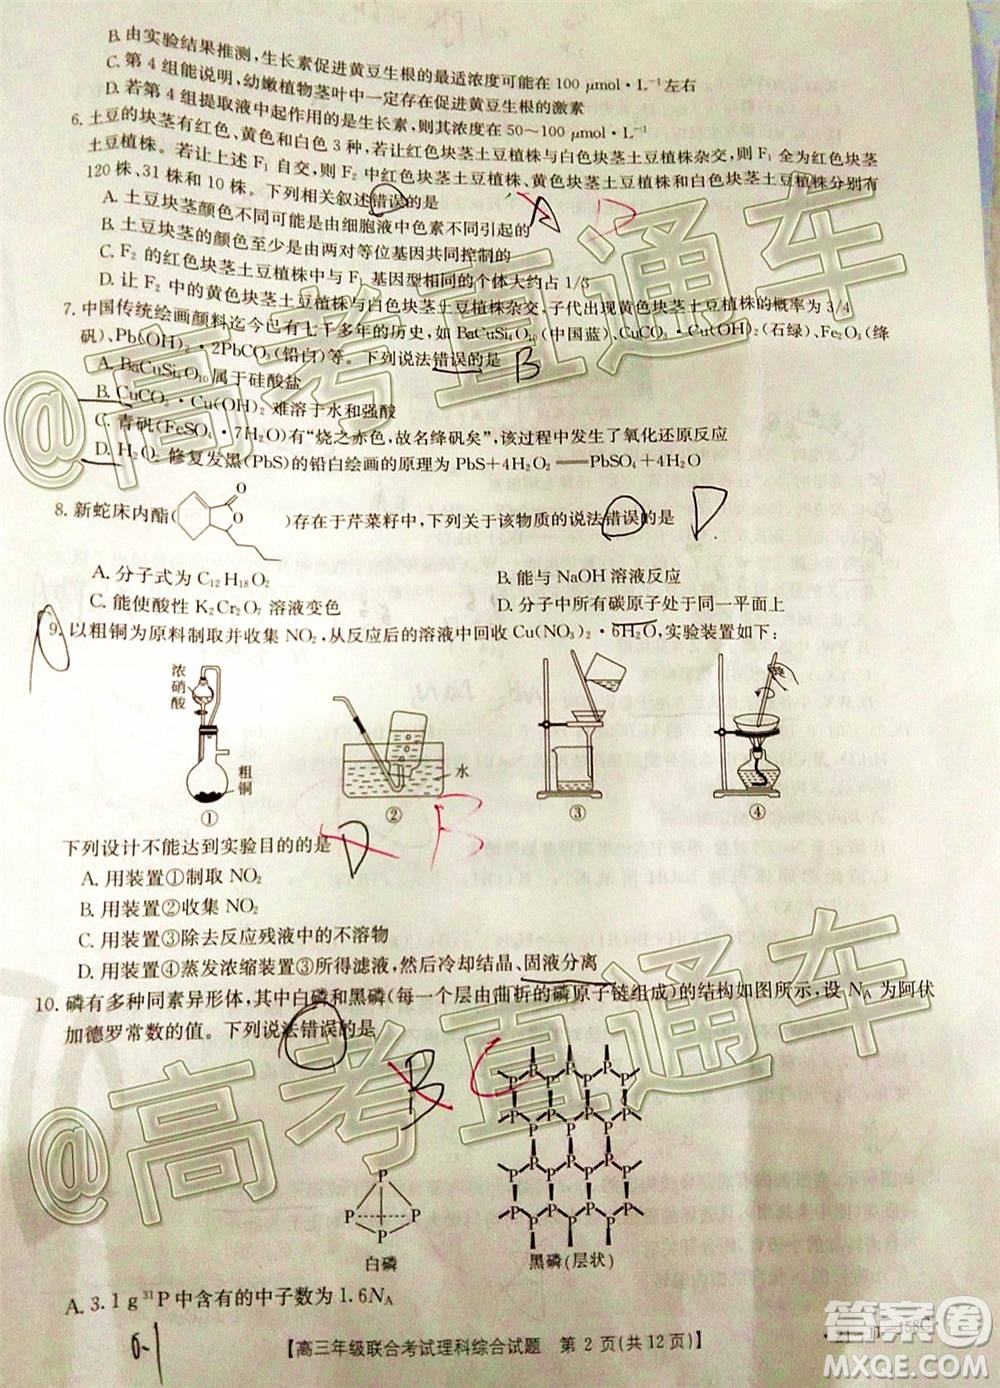 B. 由实验结果推测,生长素促进黄豆生根的最适浓度可能在 100 μmol·L⁻¹左右
C. 第 4 组能说明,幼嫩植物茎叶中一定存在促进黄豆生根的激素
D. 若第 4 组提取液中起作用的是生长素,则其浓度在 50~100 μmol·L⁻¹
6. 土豆的块茎有红色、黄色和白色 3 种,若让红色块茎土豆植株与白色块茎土豆植株杂交,则 F₁ 全为红色块茎
土豆植株。若让上述 F₁ 自交,则 F₂ 中红色块茎土豆植株、黄色块茎土豆植株和白色块茎土豆植株分别有
120 株、31 株和 10 株。下列相关叙述错误的是
A. 土豆块茎颜色不同可能是由细胞液中色素不同引起的
B. 土豆块茎的颜色至少是由两对等位基因共同控制的
C. F₂ 的红色块茎土豆植株中基因型不同的个体大约占 1/3
D. 让 F₂ 中的黄色块茎土豆植株与白色块茎土豆植株杂交,子代出现黄色块茎土豆植株的概率为 3/4
7. 中国传统绘画颜料迄今已有七千多年的历史,如 BaCuSi₄O₁₀(中国蓝)、CuCO₃·Cu(OH)₂(石绿)、Fe₂O₃(绛
矾)、Pb(OH)₂·2PbCO₃(铅白)等。下列说法错误的是 B
A. BaCuSi₄O₁₀ 属于硅酸盐
B. CuCO₃·Cu(OH)₂ 难溶于水和强酸
C. 青矾(FeSO₄·7H₂O)有“烧之赤色,故名绛矾矣”,该过程中发生了氧化还原反应
D. H₂O₂ 修复发黑(PbS)的铅白绘画的原理为 PbS+4H₂O₂══PbSO₄+4H₂O
8. 新蛇床内酯( O O )存在于芹菜籽中,下列关于该物质的说法错误的是 D
A. 分子式为 C₁₂H₁₈O₂
B. 能与 NaOH 溶液反应
C. 能使酸性 K₂Cr₂O₇ 溶液变色
D. 分子中所有碳原子处于同一平面上
9. 以粗铜为原料制取并收集 NO₂,从反应后的溶液中回收 Cu(NO₃)₂·6H₂O,实验装置如下:
浓硝酸
粗铜
水
① ② ③ ④
下列设计不能达到实验目的的是 D B
A. 用装置①制取 NO₂
B. 用装置②收集 NO₂
C. 用装置③除去反应残液中的不溶物
D. 用装置④蒸发浓缩装置③所得滤液,然后冷却结晶、固液分离
10. 磷有多种同素异形体,其中白磷和黑磷(每一个层由曲折的磷原子链组成)的结构如图所示,设 N_A 为阿伏
加德罗常数的值。下列说法错误的是 B C
白磷
黑磷(层状)
A. 3.1 g ³¹P 中含有的中子数为 1.6N_A
【高三年级联合考试理科综合试题 第 2 页(共 12 页)】
@高考直通车
@高考直通车
答案圈
MXQE.COM